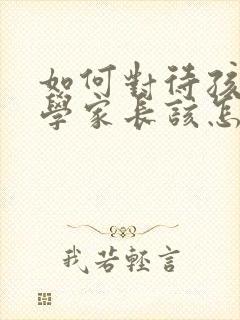 如何對待孩
學家長該怎
我若輕言